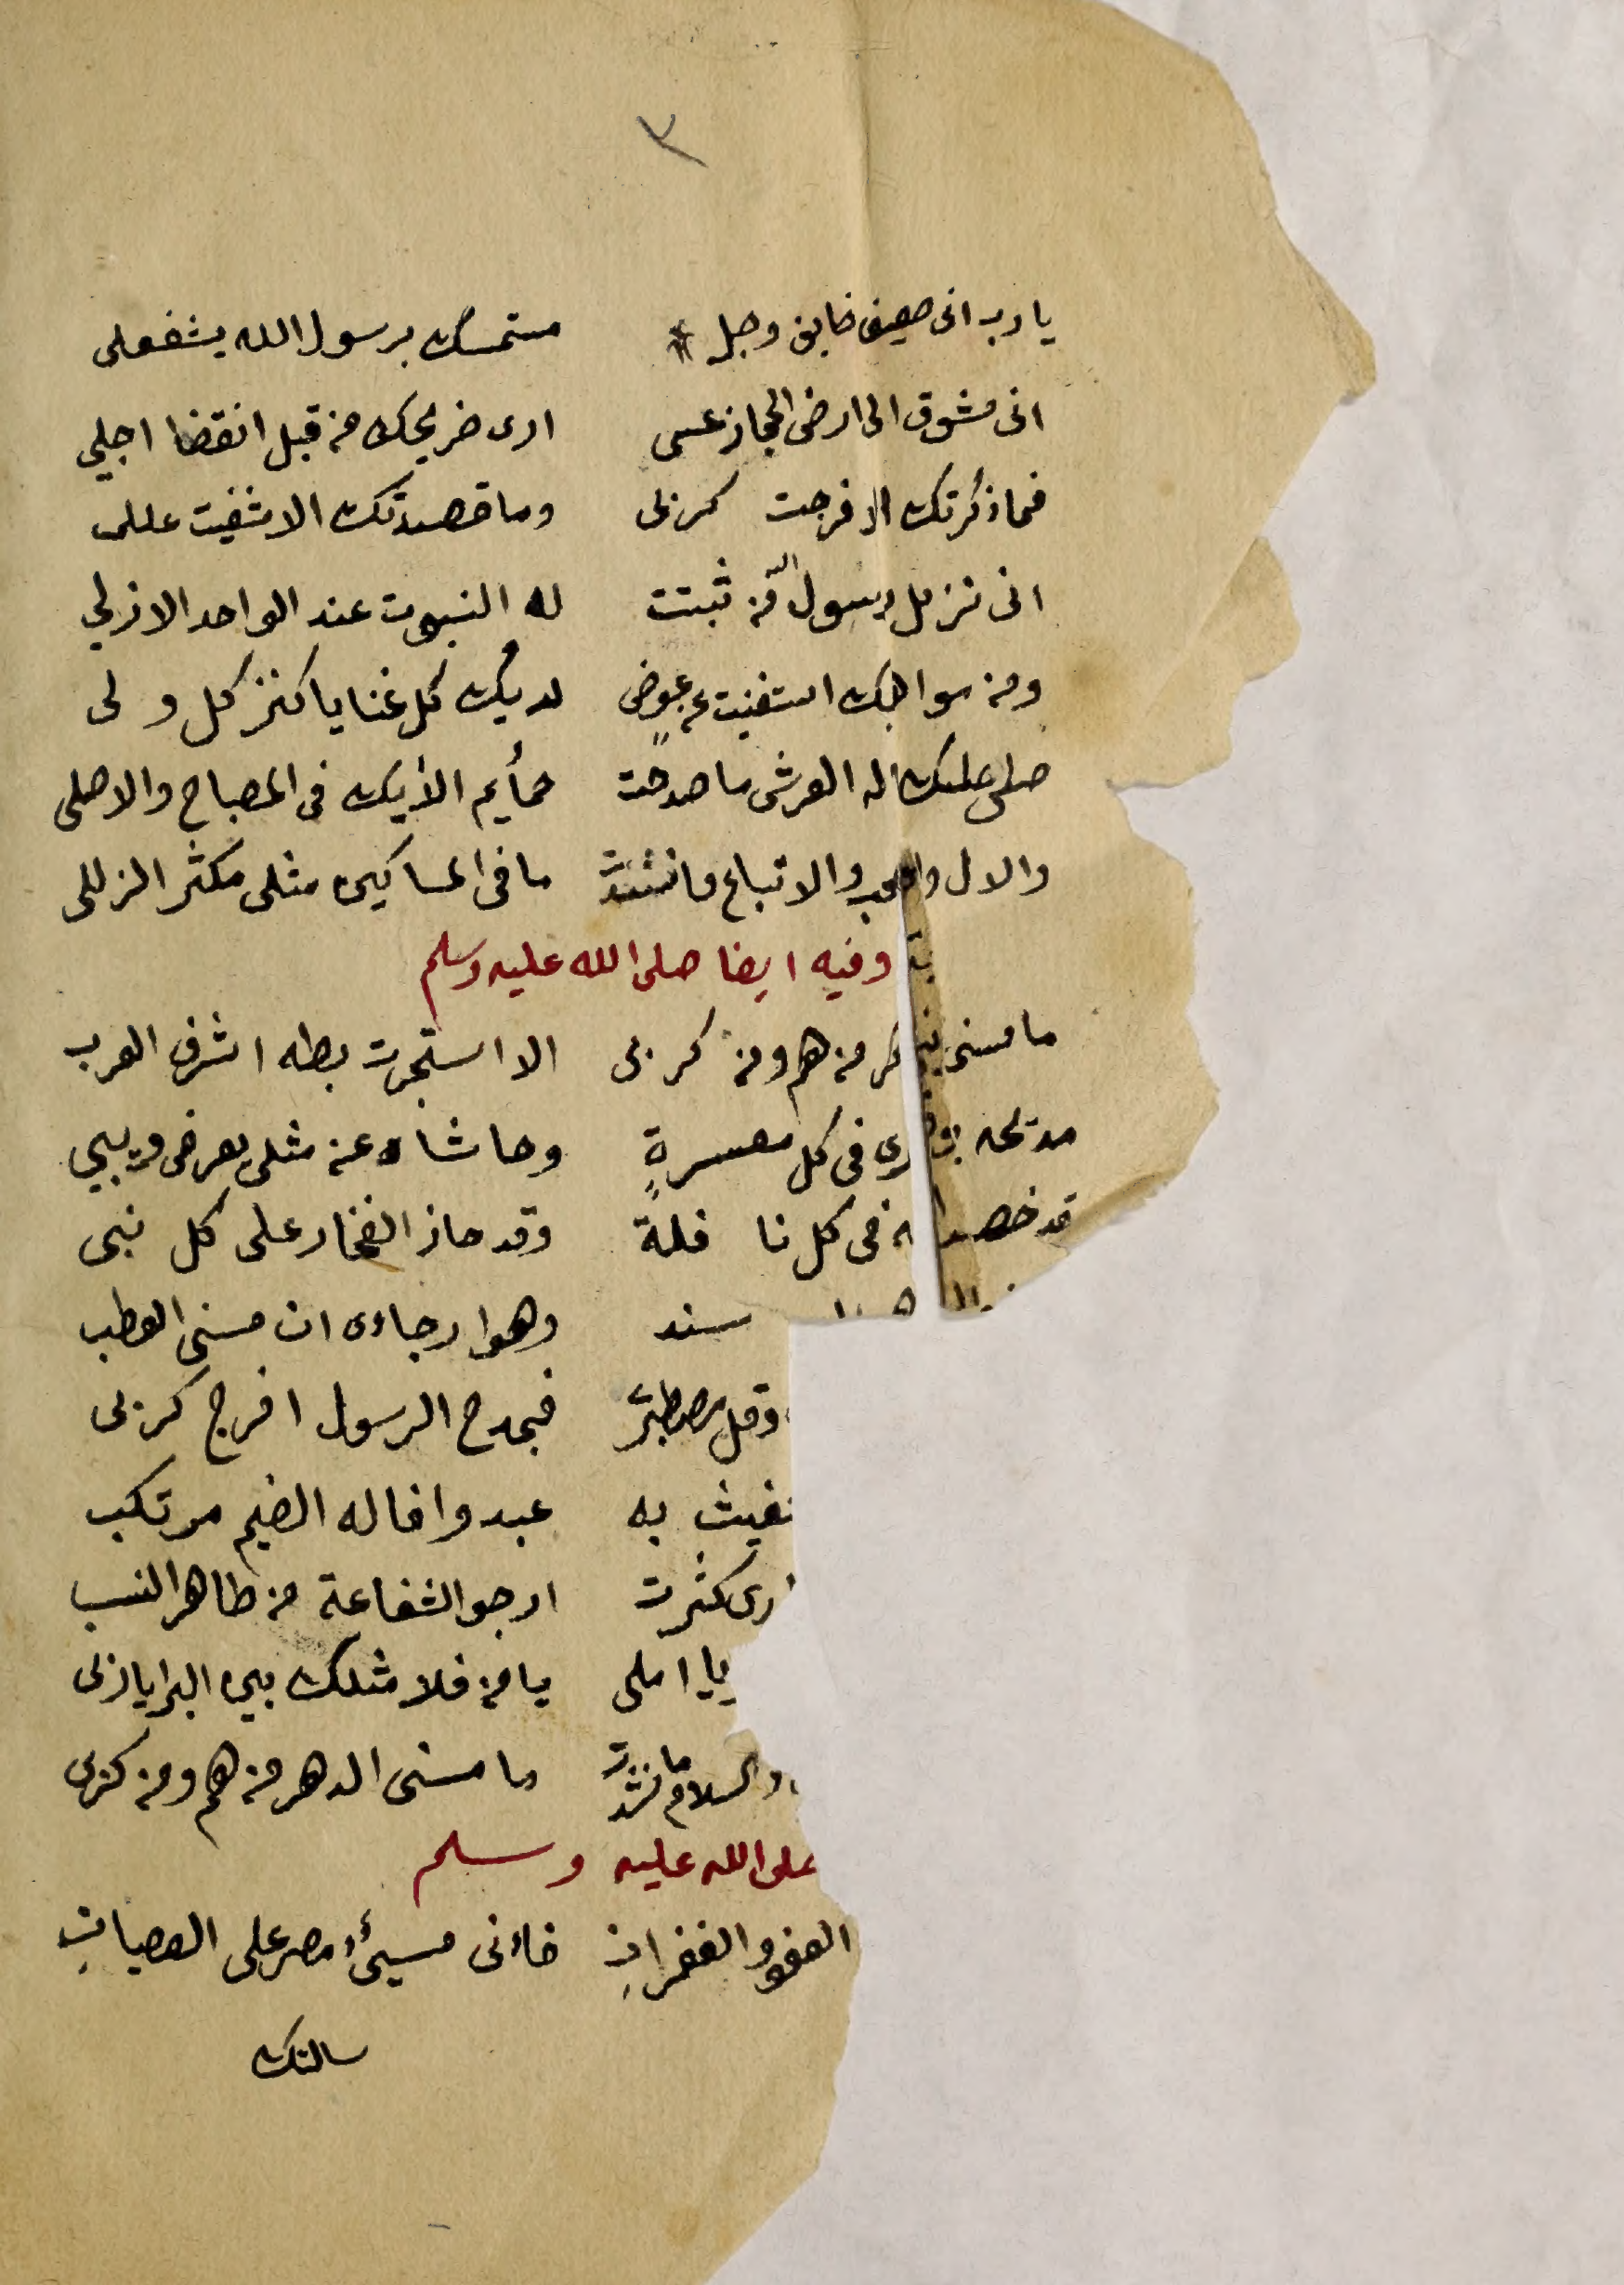 ٣
يا رب انى ضعيف خايف وجل * متمسك برسول الله يشفعلى
انى مشوق الى ارض الحجاز عسى ارى ضريحك من قبل انقضا اجلي
فما ذكرتك الا فرجت كربى وما قصدتك الا شفيت عللى
انى نزيل رسول الله من ثبتت له النبوت عند الواحد الازلي
ومن سوا استغنيت عن عوض لديك كل غنا يا كنز كل ولى
صلى عليك اله العرش ما صدحت حمأيم الأيك فى المصباح والاصلى
والال والاتباع ما نشدت ما فى المساكين مثلى مكثر الزللى
وفيه ايضا صلى الله عليه وسلم
ما مسنى من هم ومن كربى الا استجرت بطه اشرف العرب
فى كل معسرةٍ وحاشاه عن مثلى يعرض
قد خص فى كل نا فلة وقد حاز الفخار على كل نبى
سند وهوا رجاءى ان مسنى العطب
وقل مصطبرً فبمدح الرسول افرج كربى
به عبد وافا له الضيم مرتكب
كثرت ارجو الشفاعة من طاهر النسب
يا املى يا من فلا مثلك بين البرايا
والسلام ما نشدت ما مسنى الدهر من هم ومن كربى
صلى الله عليه وسلم
العفو والغفرانِ فاءنى مسيئٌ مصر على العصيانِ
سالتك